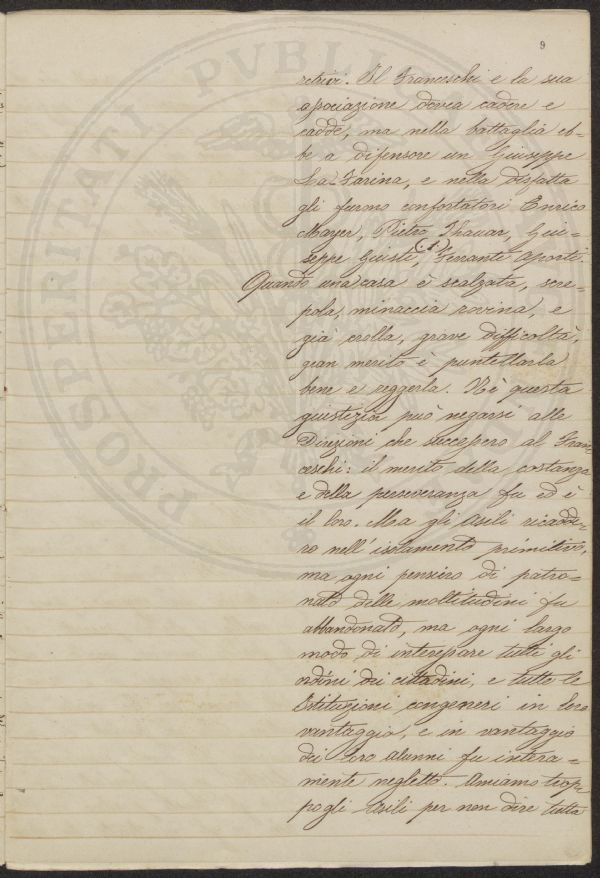 9
retrivi. Il Franceschi e la sua
associazione dovea cadere e
cadde, ma nella battaglia eb=
be a difensore un Giuseppe
La-Farina, e nella disfatta
gli furono confortatori Enrico
Mayer, Pietro Thouar, Giu=
seppe Giusti, (1) Ferrante Aporti.
Quando una casa è scalzata, scre=
pola, minaccia rovina, e
già crolla, grave difficoltà,
gran merito è puntellarla
bene e reggerla. Nè questa
giustizia può negarsi alle
Direzioni che successero al Fran
ceschi: il merito della costanza
e della perseveranza fu ed è
il loro. Ma gli Asili ricadde=
ro nell'isolamento primitivo,
ma ogni pensiero di patro=
nato delle moltitudini fu
abbandonato, ma ogni largo
modo di interessare tutti gli
ordini dei cittadini, e tutte le
Istituzioni congeneri in loro
vantaggio, e in vantaggio
dei loro alunni fu intera=
mente negletto. Amiamo trop=
po gli Asili per non dire tutta
PROSPERITATI PVBLI